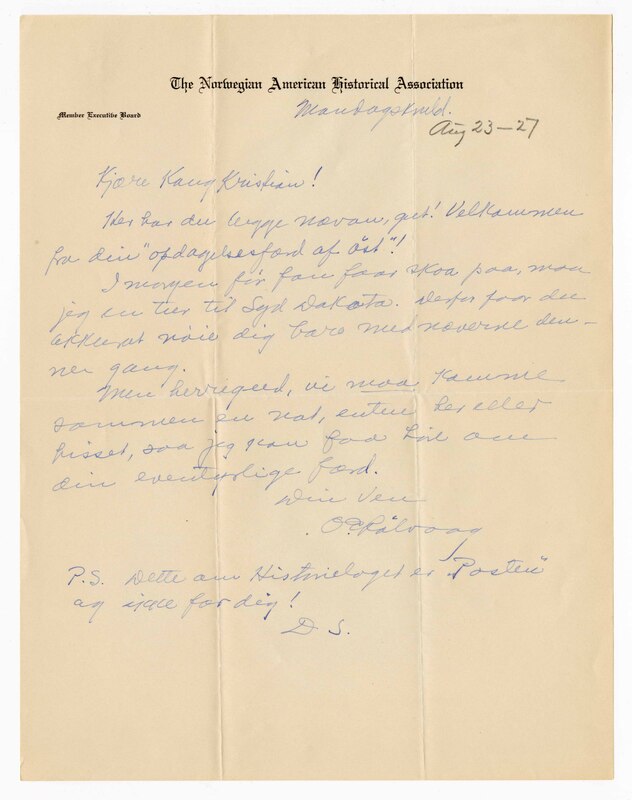 The Norwegian American Historical Association
Member Executive Board
Mandagskveld.
Aug 23-27
Kjære Kong Kristian!
Her har du begge nævan, gut! Velkommen
fra din "opdagelsesfærd af öst"!
I morgen før fan faar skoa paa, maa
jeg en tur til Syd Dakota. Derfor faar du
akkurat nöie dig bare med næverne den-
ne gang.
Men herregud, vi maa komme
sammen en nat, enten her eller
hisset, saa jeg kan faa hört om
din eventyrlige færd.
Din Ven
OERölvaag
P.S. Dette om Historielaget er "Posten"
og ikke for dig!
D S.